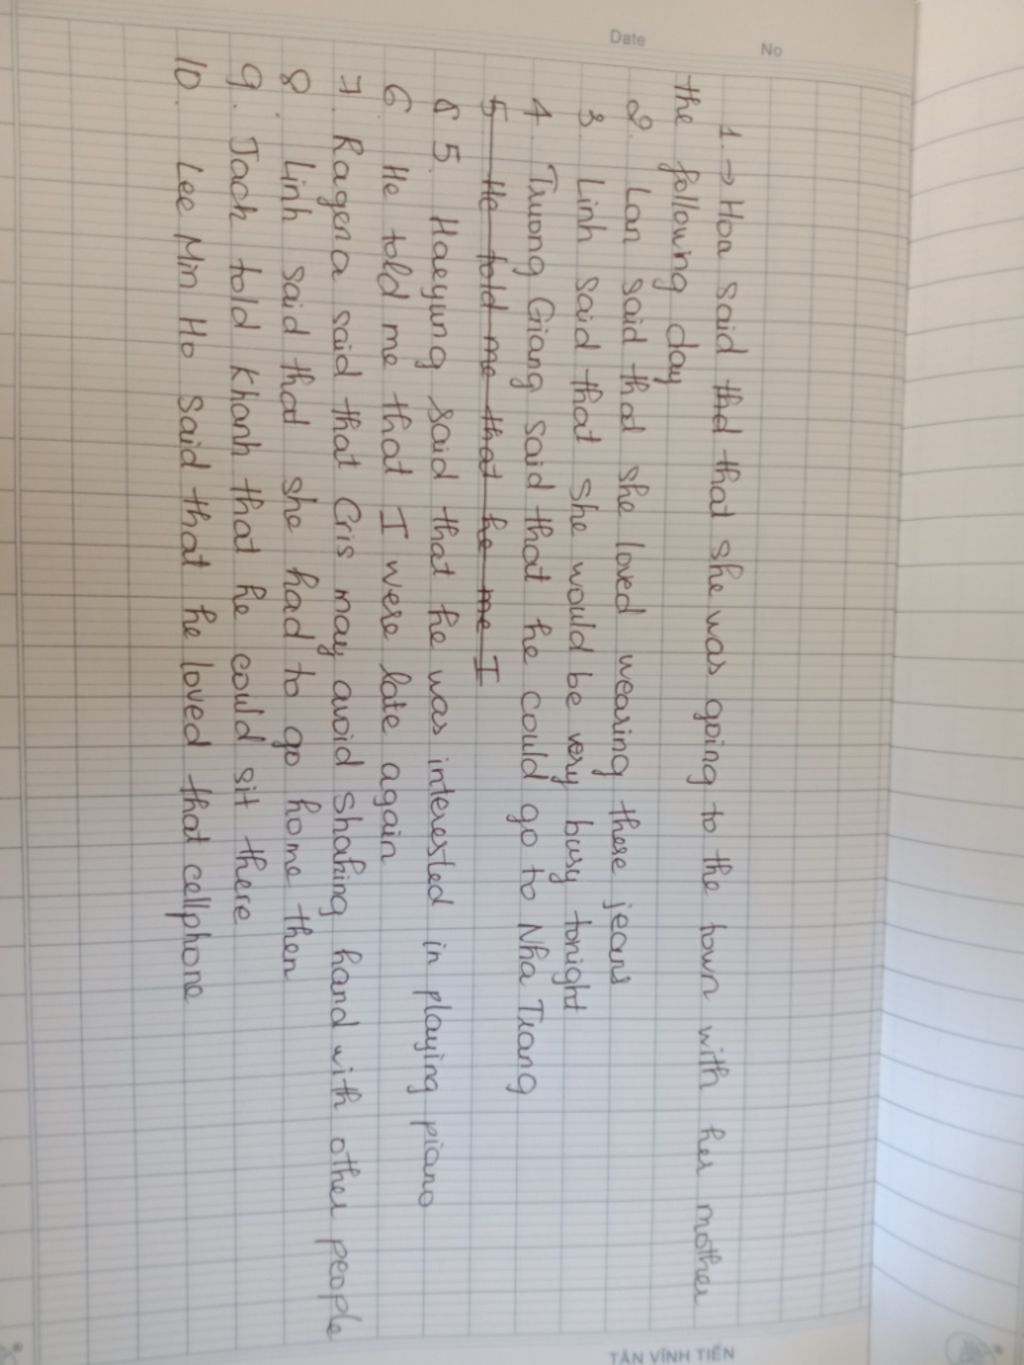 Date No
1. → Hoa said thd that she was going to the town with her mother
the following day
2. Lan said that she loved wearing these jeans
3. Linh said that she would be very busy tonight
4 Truong Giang said that he could go to Nha Trang
5 He told me that he me I
6 5. Haeyung said that he was interested in playing piano
6 He told me that I were late again
7. Ragena said that Cris may avoid shaking hand with other people
8. Linh said that she had to go home then
9. Jack told Khanh that he could sit there
10. Lee Min Ho said that he loved that cellphone
TÂN VĨNH TIẾN